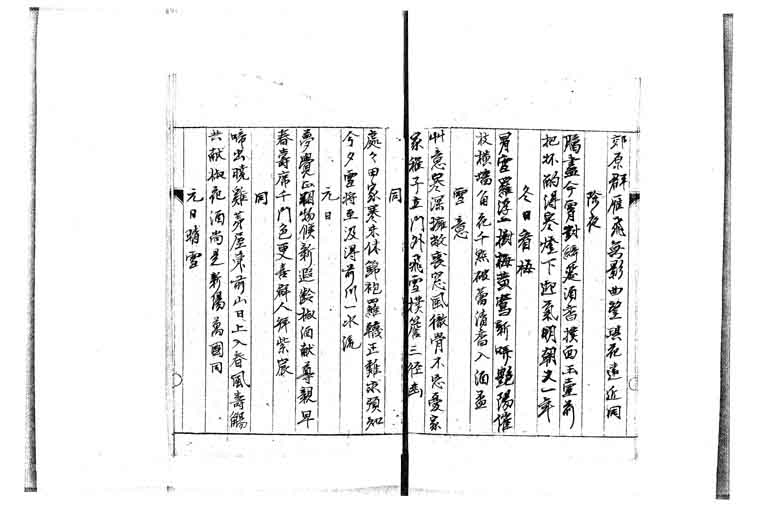 郊原群雁飛無影曲篁興花遠近洞
除夜
臈盡今宵對綠卮酒香撲面玉壺前
把杯酌得寒燈下迎氣明朝又一年
冬日看梅
胃雪羅浮一樹梅黃鶯新哢艷陽催
枝横墻角花千點破蕾清香入酒盃
雪意
艸意寒深擁故裘窓風徹骨不忘憂家
家稚子立門外飛雪撲簷三径幽
同
處々田家寒未休錦袍羅幭正難求須知
今夕雪將至汲得前川一水流
元日
夢覺正朝物候新遐齡椒酒献尊親早
春壽席千門色更喜群人拜紫宸
同
啼出曉雞茅屋東前山日上入春風壽觴
共献椒花酒尚是新陽萬國同
元日晴雪